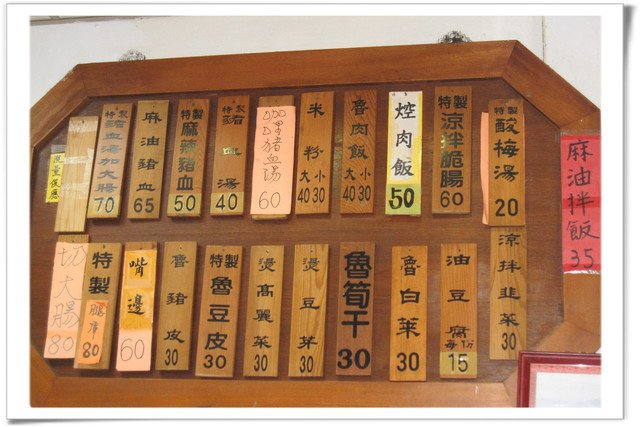 特製
酸梅湯
20
特製
涼拌脆腸
60
焢肉飯
50
魯肉飯
大 小
40 30
米粉
大 小
40 30
加D猪血湯
60
特製
豬血湯
40
特製
麻辣豬血
50
麻油豬血
65
特製
豬血湯加大腸
70
限量優應
麻油拌飯
35
涼拌韭菜
30
油豆腐
每1份
15
魯白菜
30
魯筍干
30
燙豆芽
30
燙高麗菜
30
特製
魯豆皮
30
魯豬皮
30
嘴邊
60
特製
80
切大腸
80